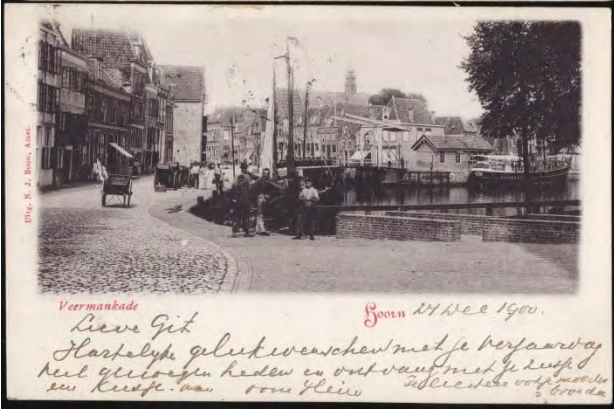 Uitg. N. J. Boon, Amst.
Veermankade
Hoorn 24 Dec 1900.
Lieve Git
Hartelijke gelukwenschen met je verjaardag
veel genoegen heden en ontvang met je zusje
een kusje van oom Hein
Feliciteer ook moeder
& broeder